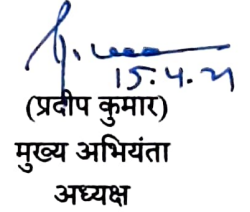 15.4.21
(प्रदीप कुमार)
मुख्य अभियंता
अध्यक्ष